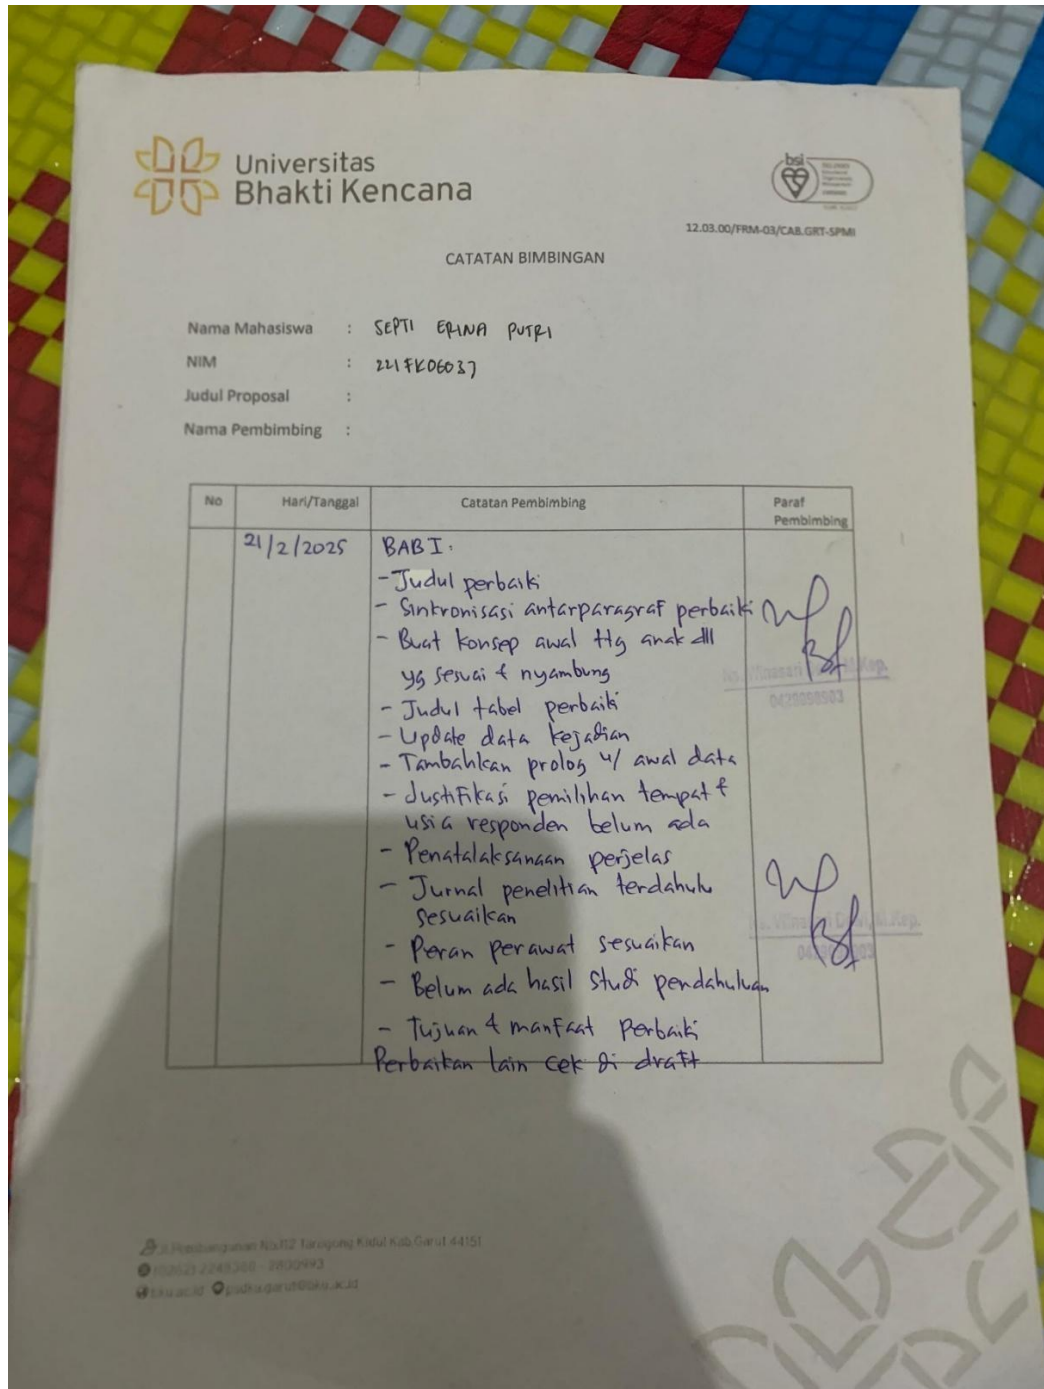 Universitas
Bhakti Kencana
bsi
12.03.00/FRM-03/CAB.GRT-SPMI
CATATAN BIMBINGAN
Nama Mahasiswa : SEPTI ERINA PUTRI
NIM : 221FK06037
Judul Proposal :
Nama Pembimbing :
No Hari/Tanggal Catatan Pembimbing Paraf Pembimbing
21/2/2025 BAB I.
- Judul perbaiki
- Sinkronisasi antarparagraf perbaiki
- Buat konsep awal ttg anak dll
yg sesuai & nyambung
- Judul tabel perbaiki
- Update data kejadian
- Tambahkan prolog u/ awal data
- Justifikasi pemilihan tempat &
usia responden belum ada
- Penatalaksanaan perjelas
- Jurnal penelitian terdahulu
sesuaikan
- Peran perawat sesuaikan
- Belum ada hasil studi pendahuluan
- Tujuan & manfaat perbaiki
Perbaikan lain cek di draft
Kidul Kab.Garut 44151
bku.ac.id